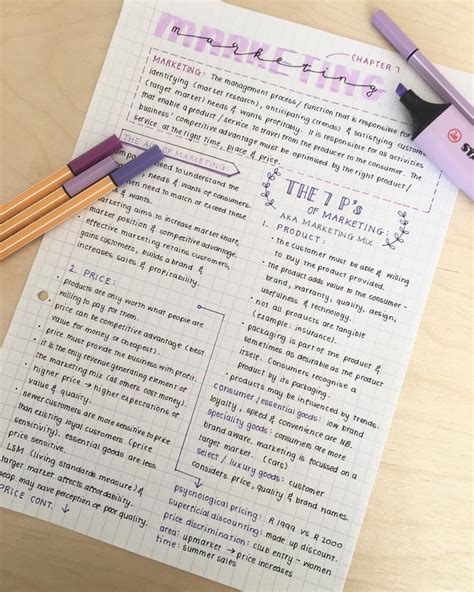 MARKETING
marketing
CHAPTER 7
MARKETING: The management process/function that is responsible for
identifying (market research), anticipating (trends) & satisfying customer
(target market) needs & wants profitably. It is responsible for all activities
that enable a product/service to travel from the producer to the consumer. The
business' competitive advantage must be optimised by the right product/
service at the right time, place & price.
THE AIM OF MARKETING:
need to understand the
needs & wants of consumers
then need to match or exceed these
marketing aims to increase market share,
market position & competitive advantage.
effective marketing retains customers,
gains customers, builds a brand &
increases sales & profitability.
2. PRICE:
• products are only worth what people are
willing to pay for them.
• price can be competitive advantage (best
value for money or cheapest).
• price must provide the business with profit.
• it is the only revenue generating element of
the marketing mix (all others cost money).
• higher price → higher expectations of
value & quality.
• newer customers are more sensitive to price
than existing loyal customers (price
sensitivity). essential goods are less
• LSM (living standards measure) &
target market affects affordability.
may have perception of poor quality.
PRICE CONT. ↓
THE 7 P's
OF MARKETING:
AKA MARKETING MIX
1. PRODUCT:
• the customer must be able & willing
to pay the product provided.
• the product adds value to the consumer -
brand, warranty, quality, design,
usefulness & technology.
• not all products are tangible
(example: insurance).
• packaging is part of the product &
sometimes as desirable as the product
itself. Consumers recognise a
product by its packaging.
• products may be influenced by trends.
consumer/essential goods: low brand
loyalty, speed & convenience are NB.
speciality goods: consumers are more
brand aware. marketing is focussed on a
target market. (cars)
select / luxury goods: customer
considers price, quality & brand names.
psychological pricing: R 1999 VS R 2000
superficial discounting: made up discount.
price discrimination: club entry - women
area: upmarket → price increases
time: summer sales